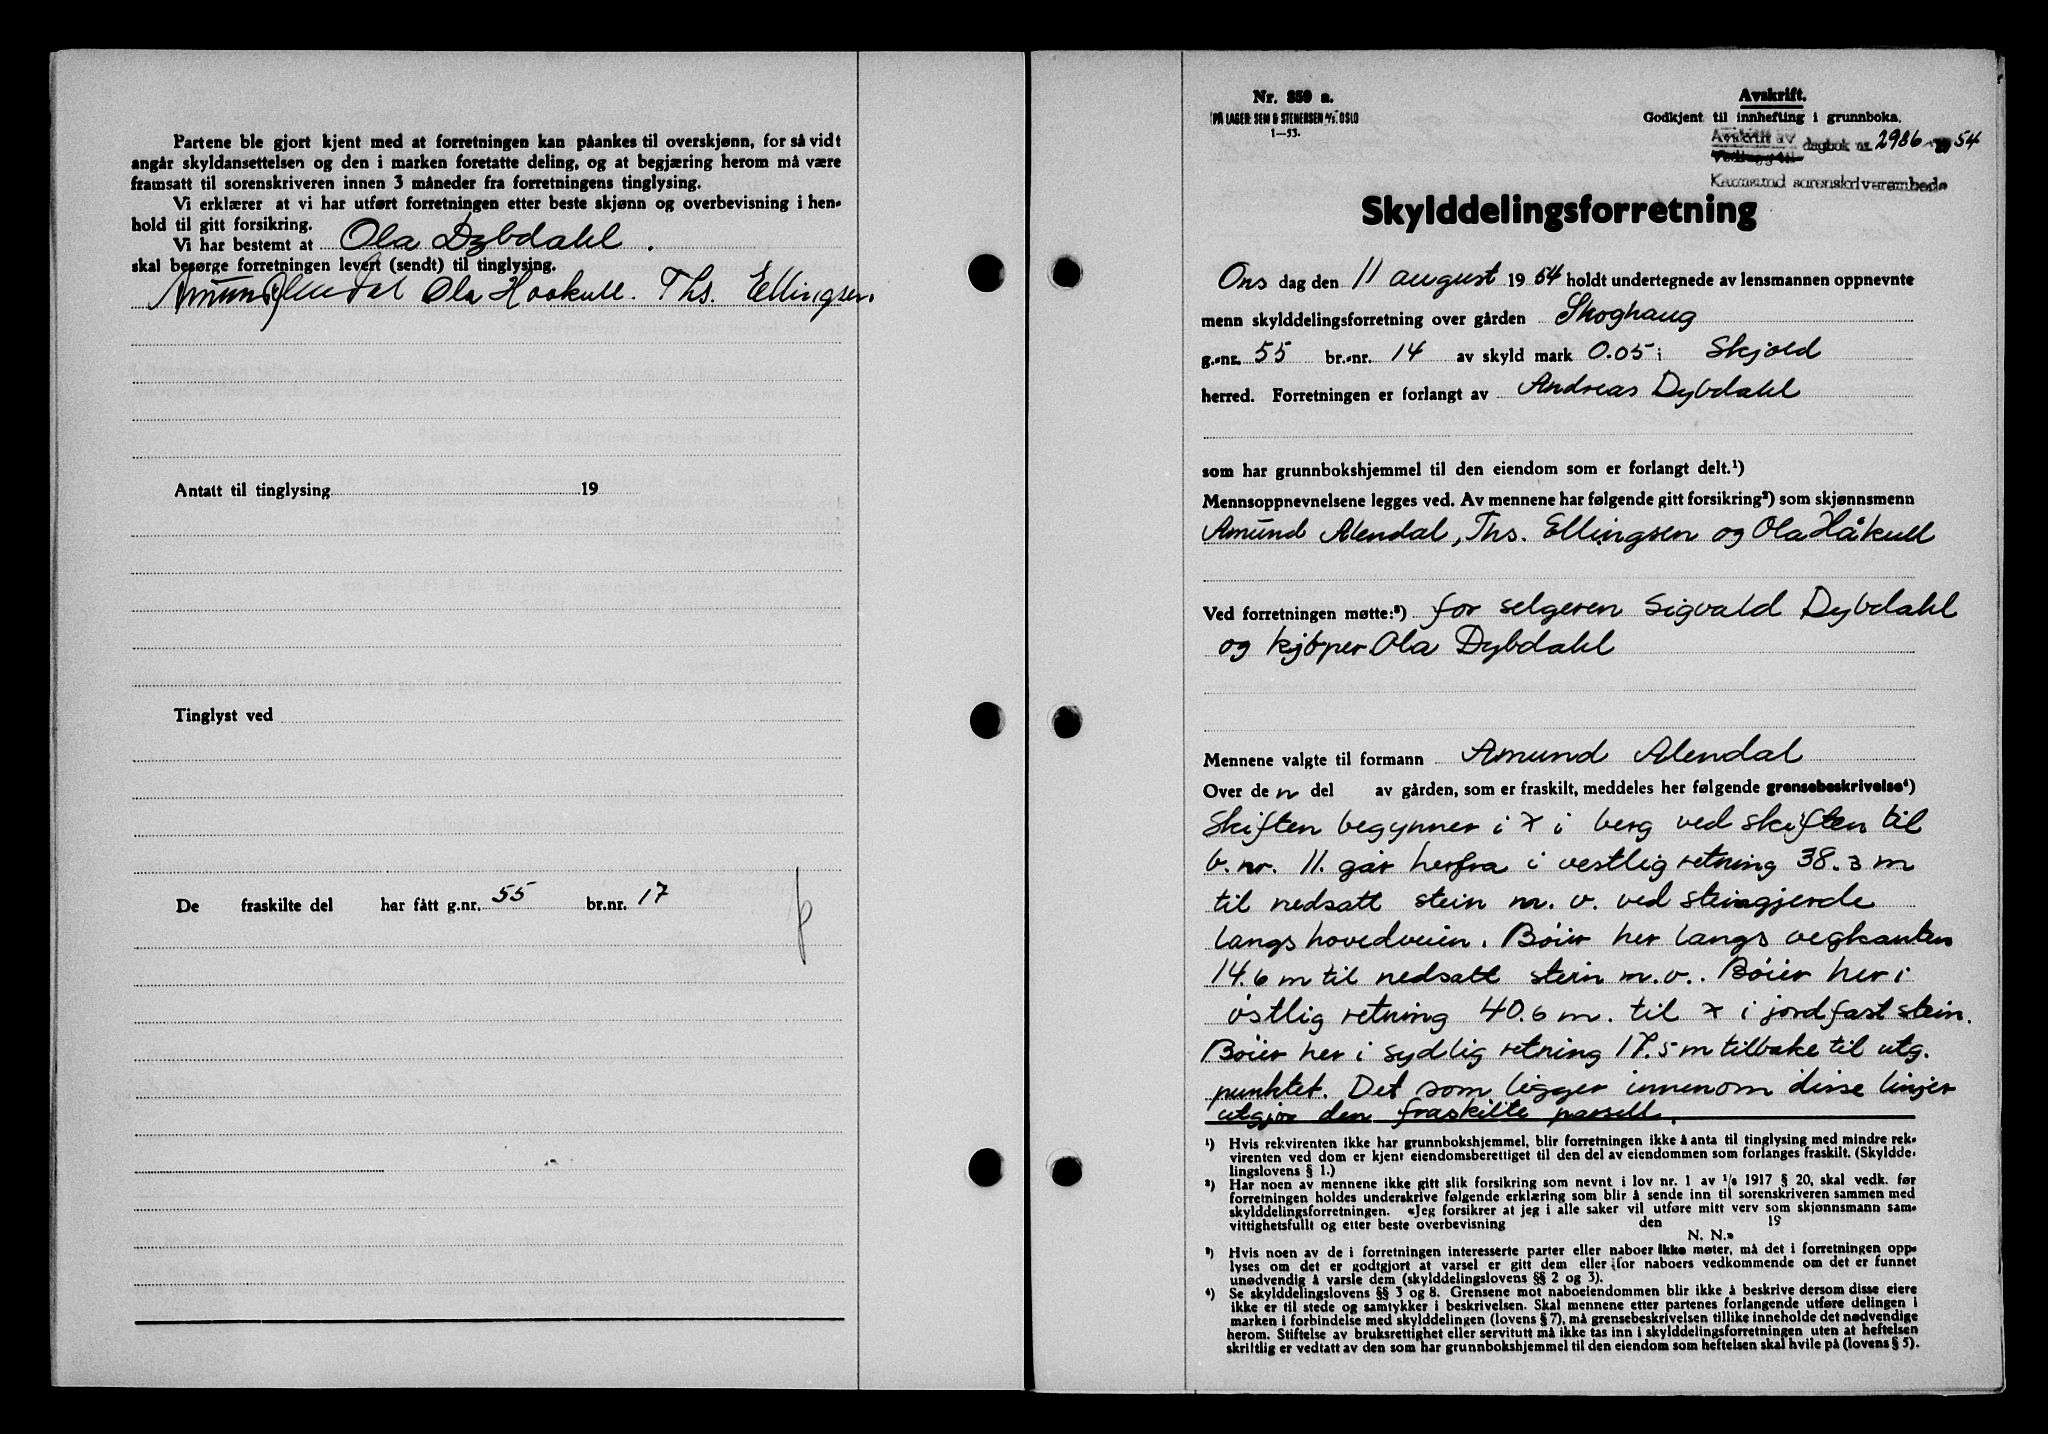 Partene ble gjort kjent med at forretningen kan påankes til overskjønn, for så vidt
angår skyldansettelsen og den i marken foretatte deling, og at begjæring herom må være
framsatt til sorenskriveren innen 3 måneder fra forretningens tinglysing.
Vi erklærer at vi har utført forretningen etter beste skjønn og overbevisning i hen-
hold til gitt forsikring.
Vi har bestemt at Ola Dybdahl.
skal besørge forretningen levert (sendt) til tinglysing.
Amund Alendal Ola Haakull. Ths. Ellingsen.
Antatt til tinglysing 19
Tinglyst ved
De fraskilte del har fått g.nr. 55 br.nr. 17
Nr. 850 a.
PÅ LAGER: SEM & STENERSEN A/S, OSLO
1—53.
Avskrift.
Godkjent til innhefting i grunnboka.
Avskrift av
Vedlegg til dagbok nr. 2986 19 54
Karmsund sorenskriverembede
Skylddelingsforretning
Ons dag den 11 august 1954 holdt undertegnede av lensmannen oppnevnte
menn skylddelingsforretning over gården Skoghaug
g.-nr. 55 br.-nr. 14 av skyld mark 0.05 i Skjold
herred. Forretningen er forlangt av Andreas Dybdahl
som har grunnbokshjemmel til den eiendom som er forlangt delt.¹)
Mennsoppnevnelsene legges ved. Av mennene har følgende gitt forsikring²) som skjønnsmenn
Amund Alendal, Ths. Ellingsen og Ola Håkull
Ved forretningen møtte:³) for selgeren Sigvald Dybdahl
og kjøper Ola Dybdahl
Mennene valgte til formann Amund Alendal
Over de n del av gården, som er fraskilt, meddeles her følgende grensebeskrivelse⁴)
Skiften begynner i x i berg ved skiften til
b. nr. 11. går herfra i vestlig retning 38.3 m
til nedsatt stein m. v. ved steingjerde
langs hovedveien. Bøier her langs vegkanten
14.6 m til nedsatt stein m.v.. Bøier her i
østlig retning 40.6 m. til x i jordfast stein.
Bøier her i sydlig retning 17.5 m tilbake til utg.
punktet. Det som ligger innenom disse linjer
utgjør den fraskilte parsell.
¹) Hvis rekvirenten ikke har grunnbokshjemmel, blir forretningen ikke å anta til tinglysing med mindre rek-
virenten ved dom er kjent eiendomsberettiget til den del av eiendommen som forlanges fraskilt. (Skyldde-
lingslovens § 1.)
²) Har noen av mennene ikke gitt slik forsikring som nevnt i lov nr. 1 av 1/6 1917 § 20, skal vedk. før
forretningen holdes underskrive følgende erklæring som blir å sende inn til sorenskriveren sammen med
skylddelingsforretningen. «Jeg forsikrer at jeg i alle saker vil utføre mitt verv som skjønnsmann sam-
vittighetsfullt og etter beste overbevisning den 19
N. N.»
³) Hvis noen av de i forretningen interesserte parter eller naboer ikke møter, må det i forretningen opp-
lyses om det er godtgjort at varsel er gitt dem eller for naboers vedkommende om det er funnet
unødvendig å varsle dem (skylddelingslovens §§ 2 og 3).
⁴) Se skylddelingslovens §§ 3 og 8. Grensene mot naboeiendommen blir ikke å beskrive dersom disse eiere
ikke er til stede og samtykker i beskrivelsen. Skal mennene etter partenes forlangende utføre delingen i
marken i forbindelse med skylddelingen (lovens § 7), må grensebeskrivelsen tillike inneholde det nødvendige
herom. Stiftelse av bruksrettighet eller servitutt må ikke tas inn i skylddelingsforretningen uten at heftelsen
skriftlig er vedtatt av den som har grunnbokshjemmel til den eiendom som heftelsen skal hvile på (lovens § 5).